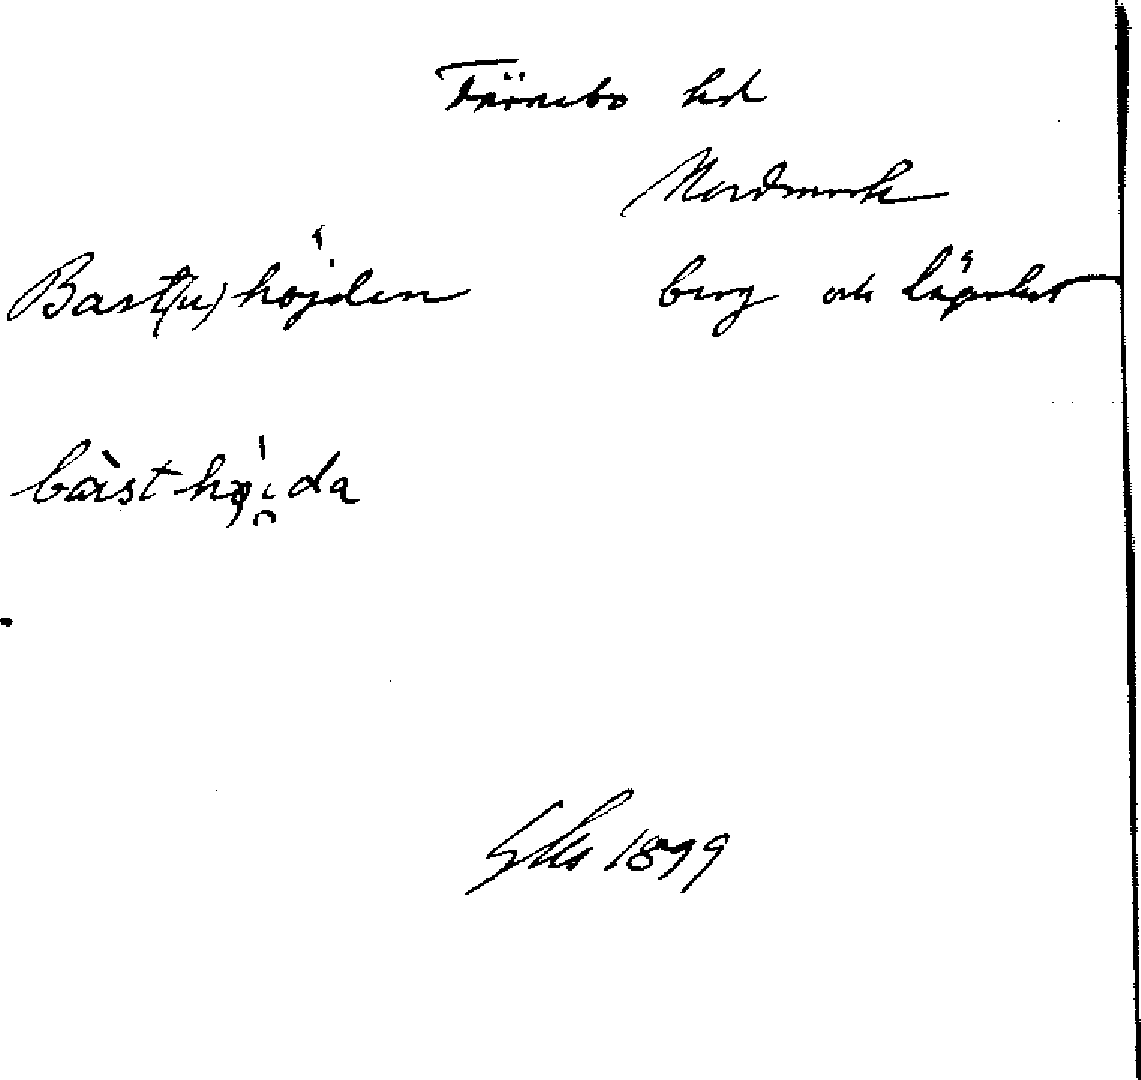 Färnebo hd
Nordmark
Bast(u)höjden berg och lägenhet
bàsthø̀i̯da
1899